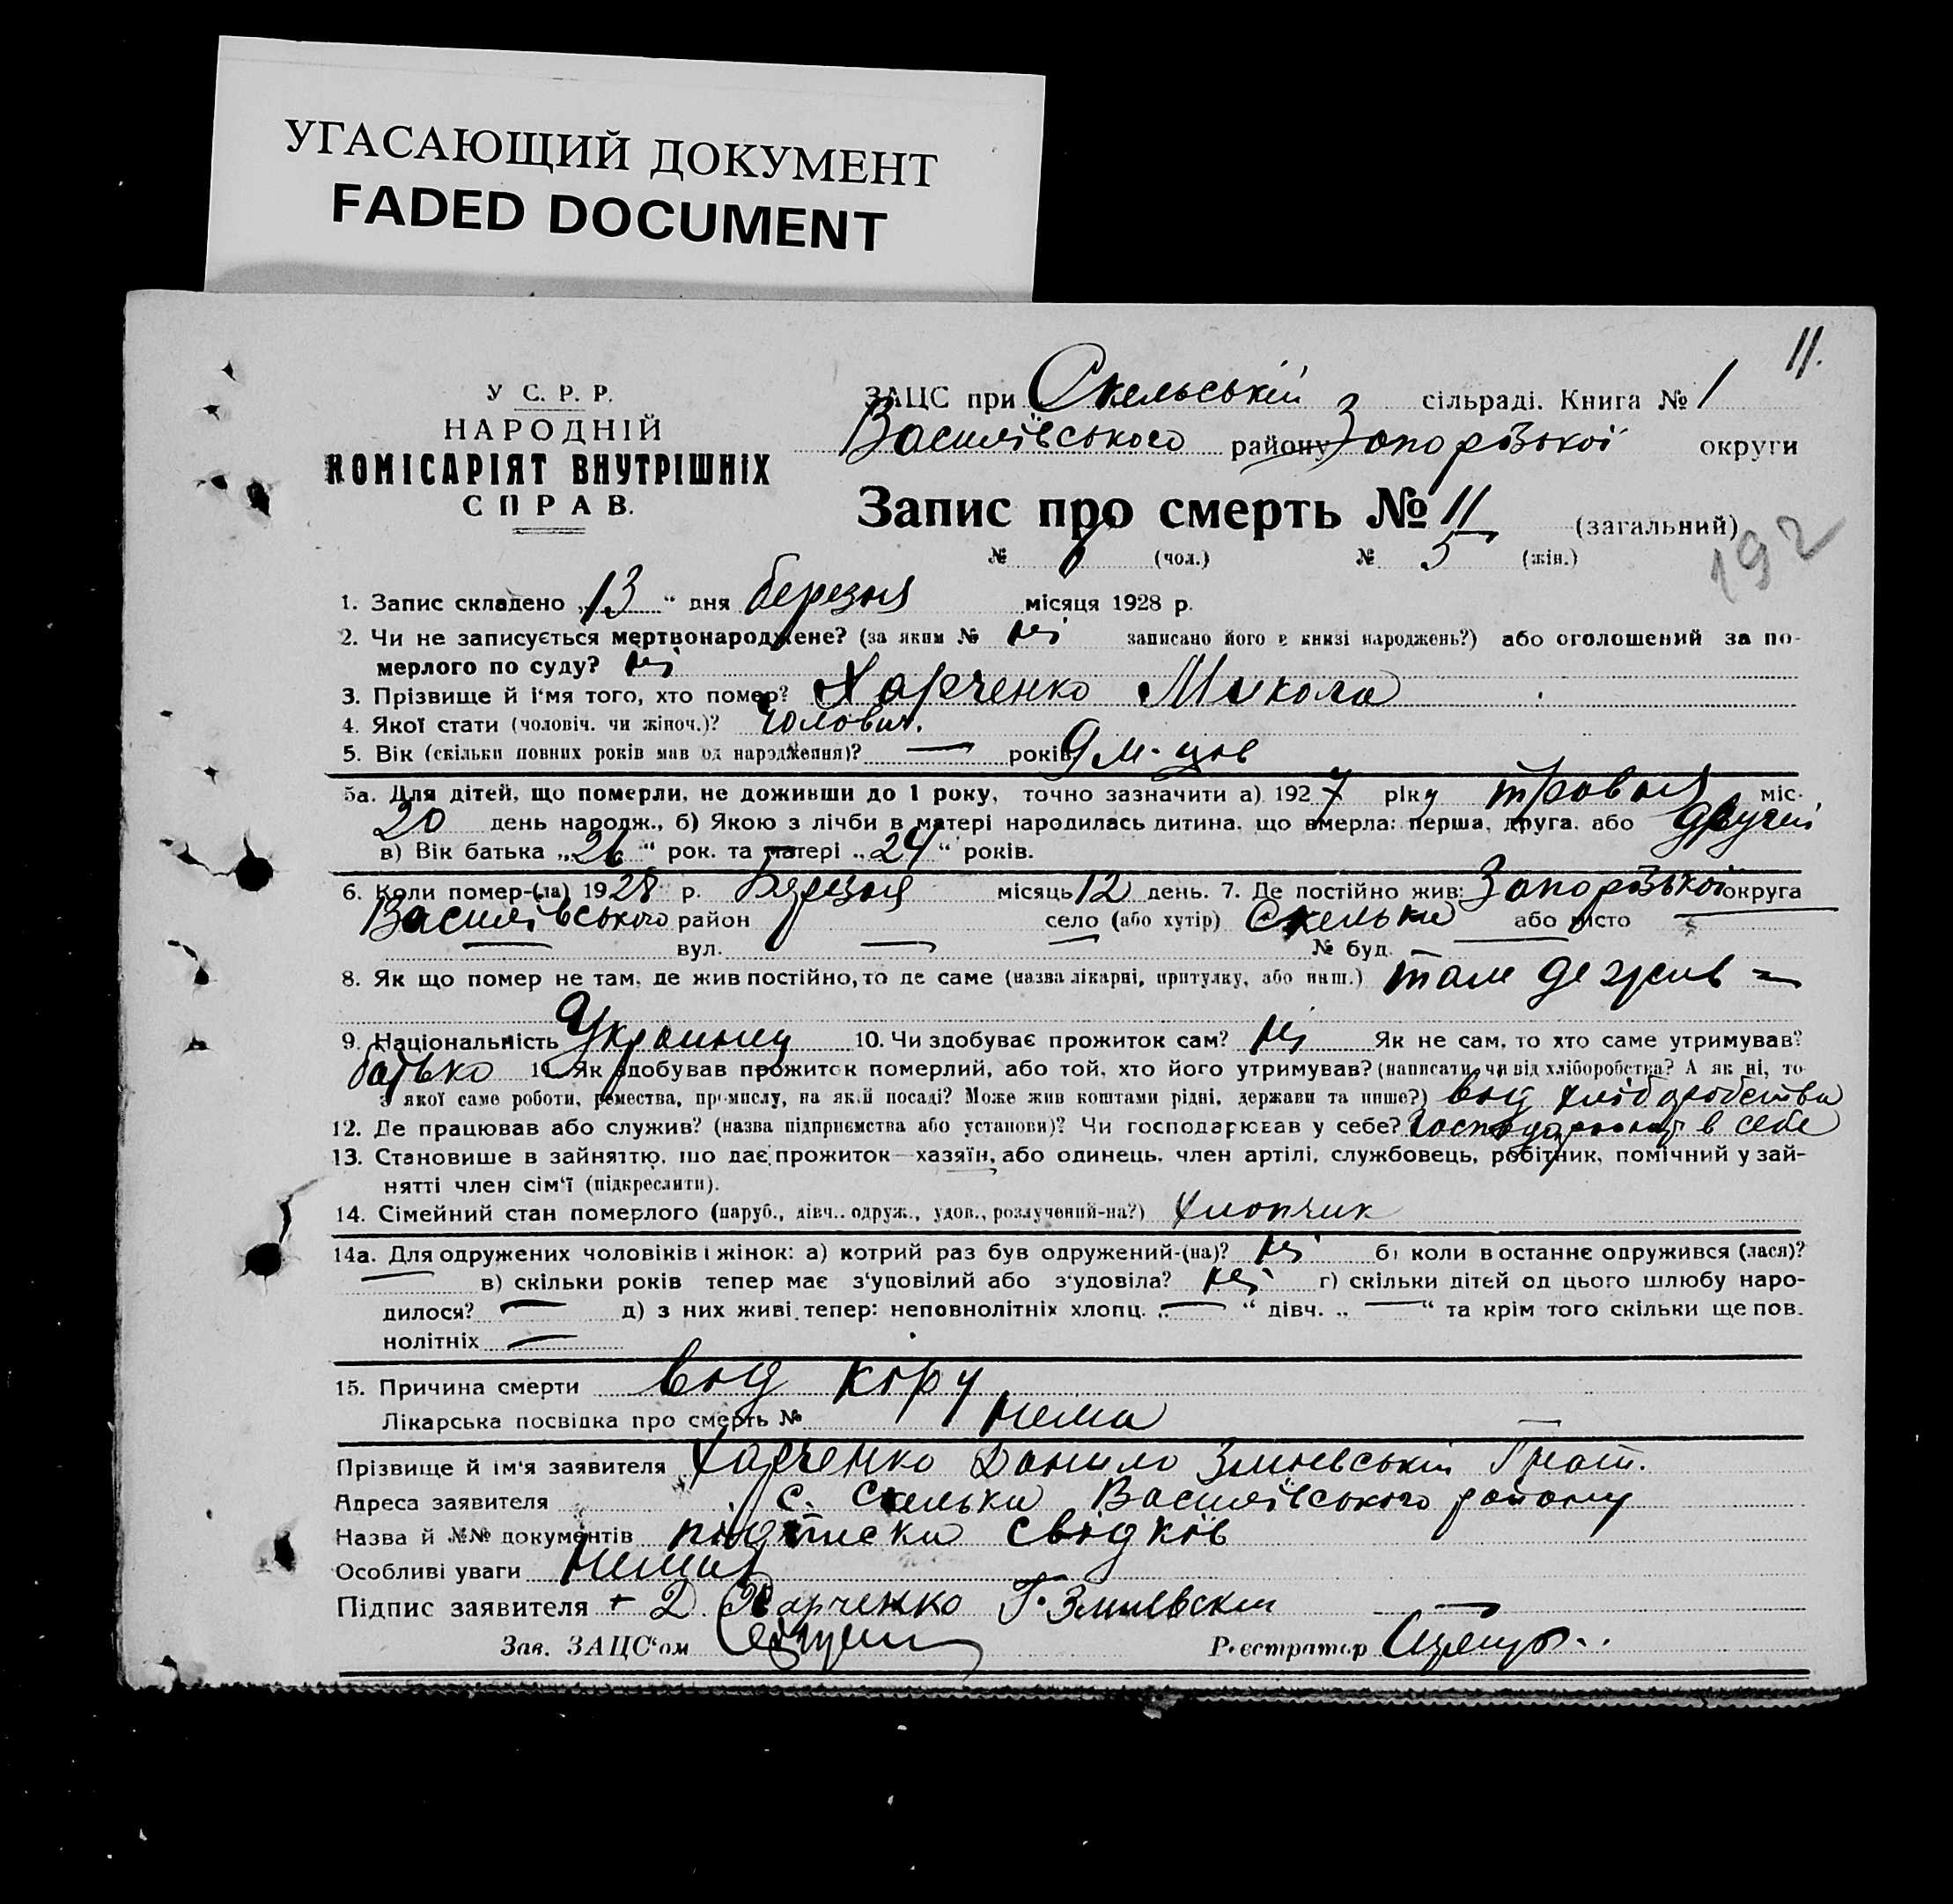 УГАСАЮЩИЙ ДОКУМЕНТ
FADED DOCUMENT
11.
У С. Р. Р.
НАРОДНІЙ
КОМІСАРІЯТ ВНУТРІШНІХ
СПРАВ.
ЗАЦС при Скельській сільраді. Книга № 1
Василівського району Запорізької округи
Запис про смерть № 11 (загальний)
192
№ 6 (чол.) № 5 (жін.)
1. Запис складено „13“ дня березня місяця 1928 р.
2. Чи не записується мертвонароджене? (за яким № ні записано його в книзі народжень?) або оголошений за по-
мерлого по суду? ні
3. Прізвище й і'мя того, хто помер? Харченко Микола
4. Якої стати (чоловіч. чи жіноч.)? Чоловіч.
5. Вік (скільки повних років мав од народження)? — років 9 м-цов
5а. Для дітей, що померли, не доживши до 1 року, точно зазначити а) 1927 ріку травня міс.
20 день народж., б) Якою з лічби в матері народилась дитина, що вмерла: перша, друга, або другий
в) Вік батька „26“ рок. та матері „24“ років.
6. Коли помер-(ла) 1928 р. Березня місяць 12 день. 7. Де постійно жив: Запорізької округа
Василівського район село (або хутір) Скельки або місто —
— вул. — № буд. —
8. Як що помер не там, де жив постійно, то де саме (назва лікарні, притулку, або инш.) там де жив =
9. Національність Украинец 10. Чи здобуває прожиток сам? ні Як не сам, то хто саме утримував?
батько 11. Як здобував прожиток померлий, або той, хто його утримував? (написати, чи від хліборобства? А як ні, то
з якої саме роботи, ремества, промислу, на якій посаді? Може жив коштами рідні, держави та инше?) від хліборобства
12. Де працював або служив? (назва підприємства або установи)? Чи господарював у себе? в себе
13. Становище в зайняттю, що дає прожиток—хазяїн, або одинець, член артілі, службовець, робітник, помічний у зай-
нятті член сім'ї (підкреслити).
14. Сімейний стан померлого (паруб., дівч., одруж., удов., розлучений-на?) хлопчик
14а. Для одружених чоловіків і жінок: а) котрий раз був одружений-(на)? ні б) коли в останнє одружився (лася)?
— в) скільки років тепер має з'уповілий або з'удовіла? ні г) скільки дітей од цього шлюбу наро-
дилося? — д) з них живі тепер: неповнолітніх хлопц. „—“ дівч. „—“ та крім того скільки ще пов.
нолітніх —
15. Причина смерти від кіру
Лікарська посвідка про смерть № нема —
Прізвище й ім'я заявителя Харченко Данило Змиевський
Адреса заявителя с. Скельки Василівського району
Назва й №№ документів підписки свідків
Особливі уваги Нема
Підпис заявителя + Д. Харченко Г. Змиевский —
Зав. ЗАЦС'ом Реєстратор